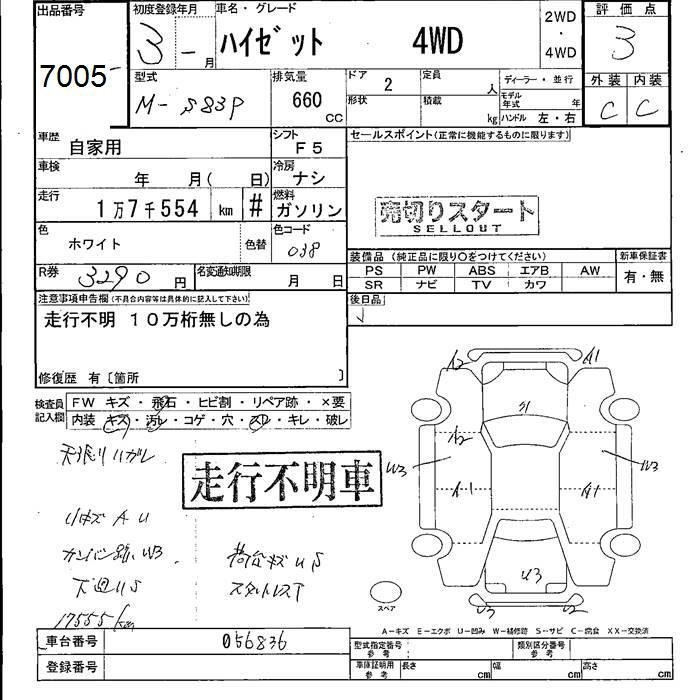 出品番号
7005
初度登録年月
3 - 月
車名・グレード
ハイゼット 4WD
2WD
・
4WD
評価点
3
型式
M-S83P
排気量
660
CC
ドア
2
形状
定員
人
積載
kg
ディーラー・並行
モデル年式 年
ハンドル 左・右
外装 内装
C C
車歴
自家用
シフト
F5
セールスポイント(正常に機能するものに限ります)
車検
年 月( 日)
冷房
ナシ
走行
1万7千554 km #
燃料
ガソリン
売切りスタート
SELLOUT
色
ホワイト
色替
色コード
038
装備品(純正品に限り○をつけてください)
PS PW ABS エアB AW
SR ナビ TV カワ
新車保証書
有・無
R券
3290 円
名変通知期限
月 日
後日品
注意事項申告欄(不具合内容等は具体的に記入して下さい)
走行不明 10万桁無しの為
修復歴 有〔箇所 〕
検査員記入欄
FW キズ・飛石・ヒビ割・リペア跡・×要
内装 キズ・汚レ・コゲ・穴・スレ・キレ・破レ
天張りハガレ
走行不明車
小キズ A U
カンバン跡 W3
荷台キズ U S
下廻り S
17555km
A2
A1
S1
A2
W3
W3
A1
A1
U3
U3
U2
スペア
A-キズ E-エクボ U-凹み W-補修跡 S-サビ C-腐食 XX-交換済
車台番号
056836
登録番号
型式指定番号
参考
類別区分番号
参考
車庫証明用
参考
長さ cm
幅 cm
高さ cm